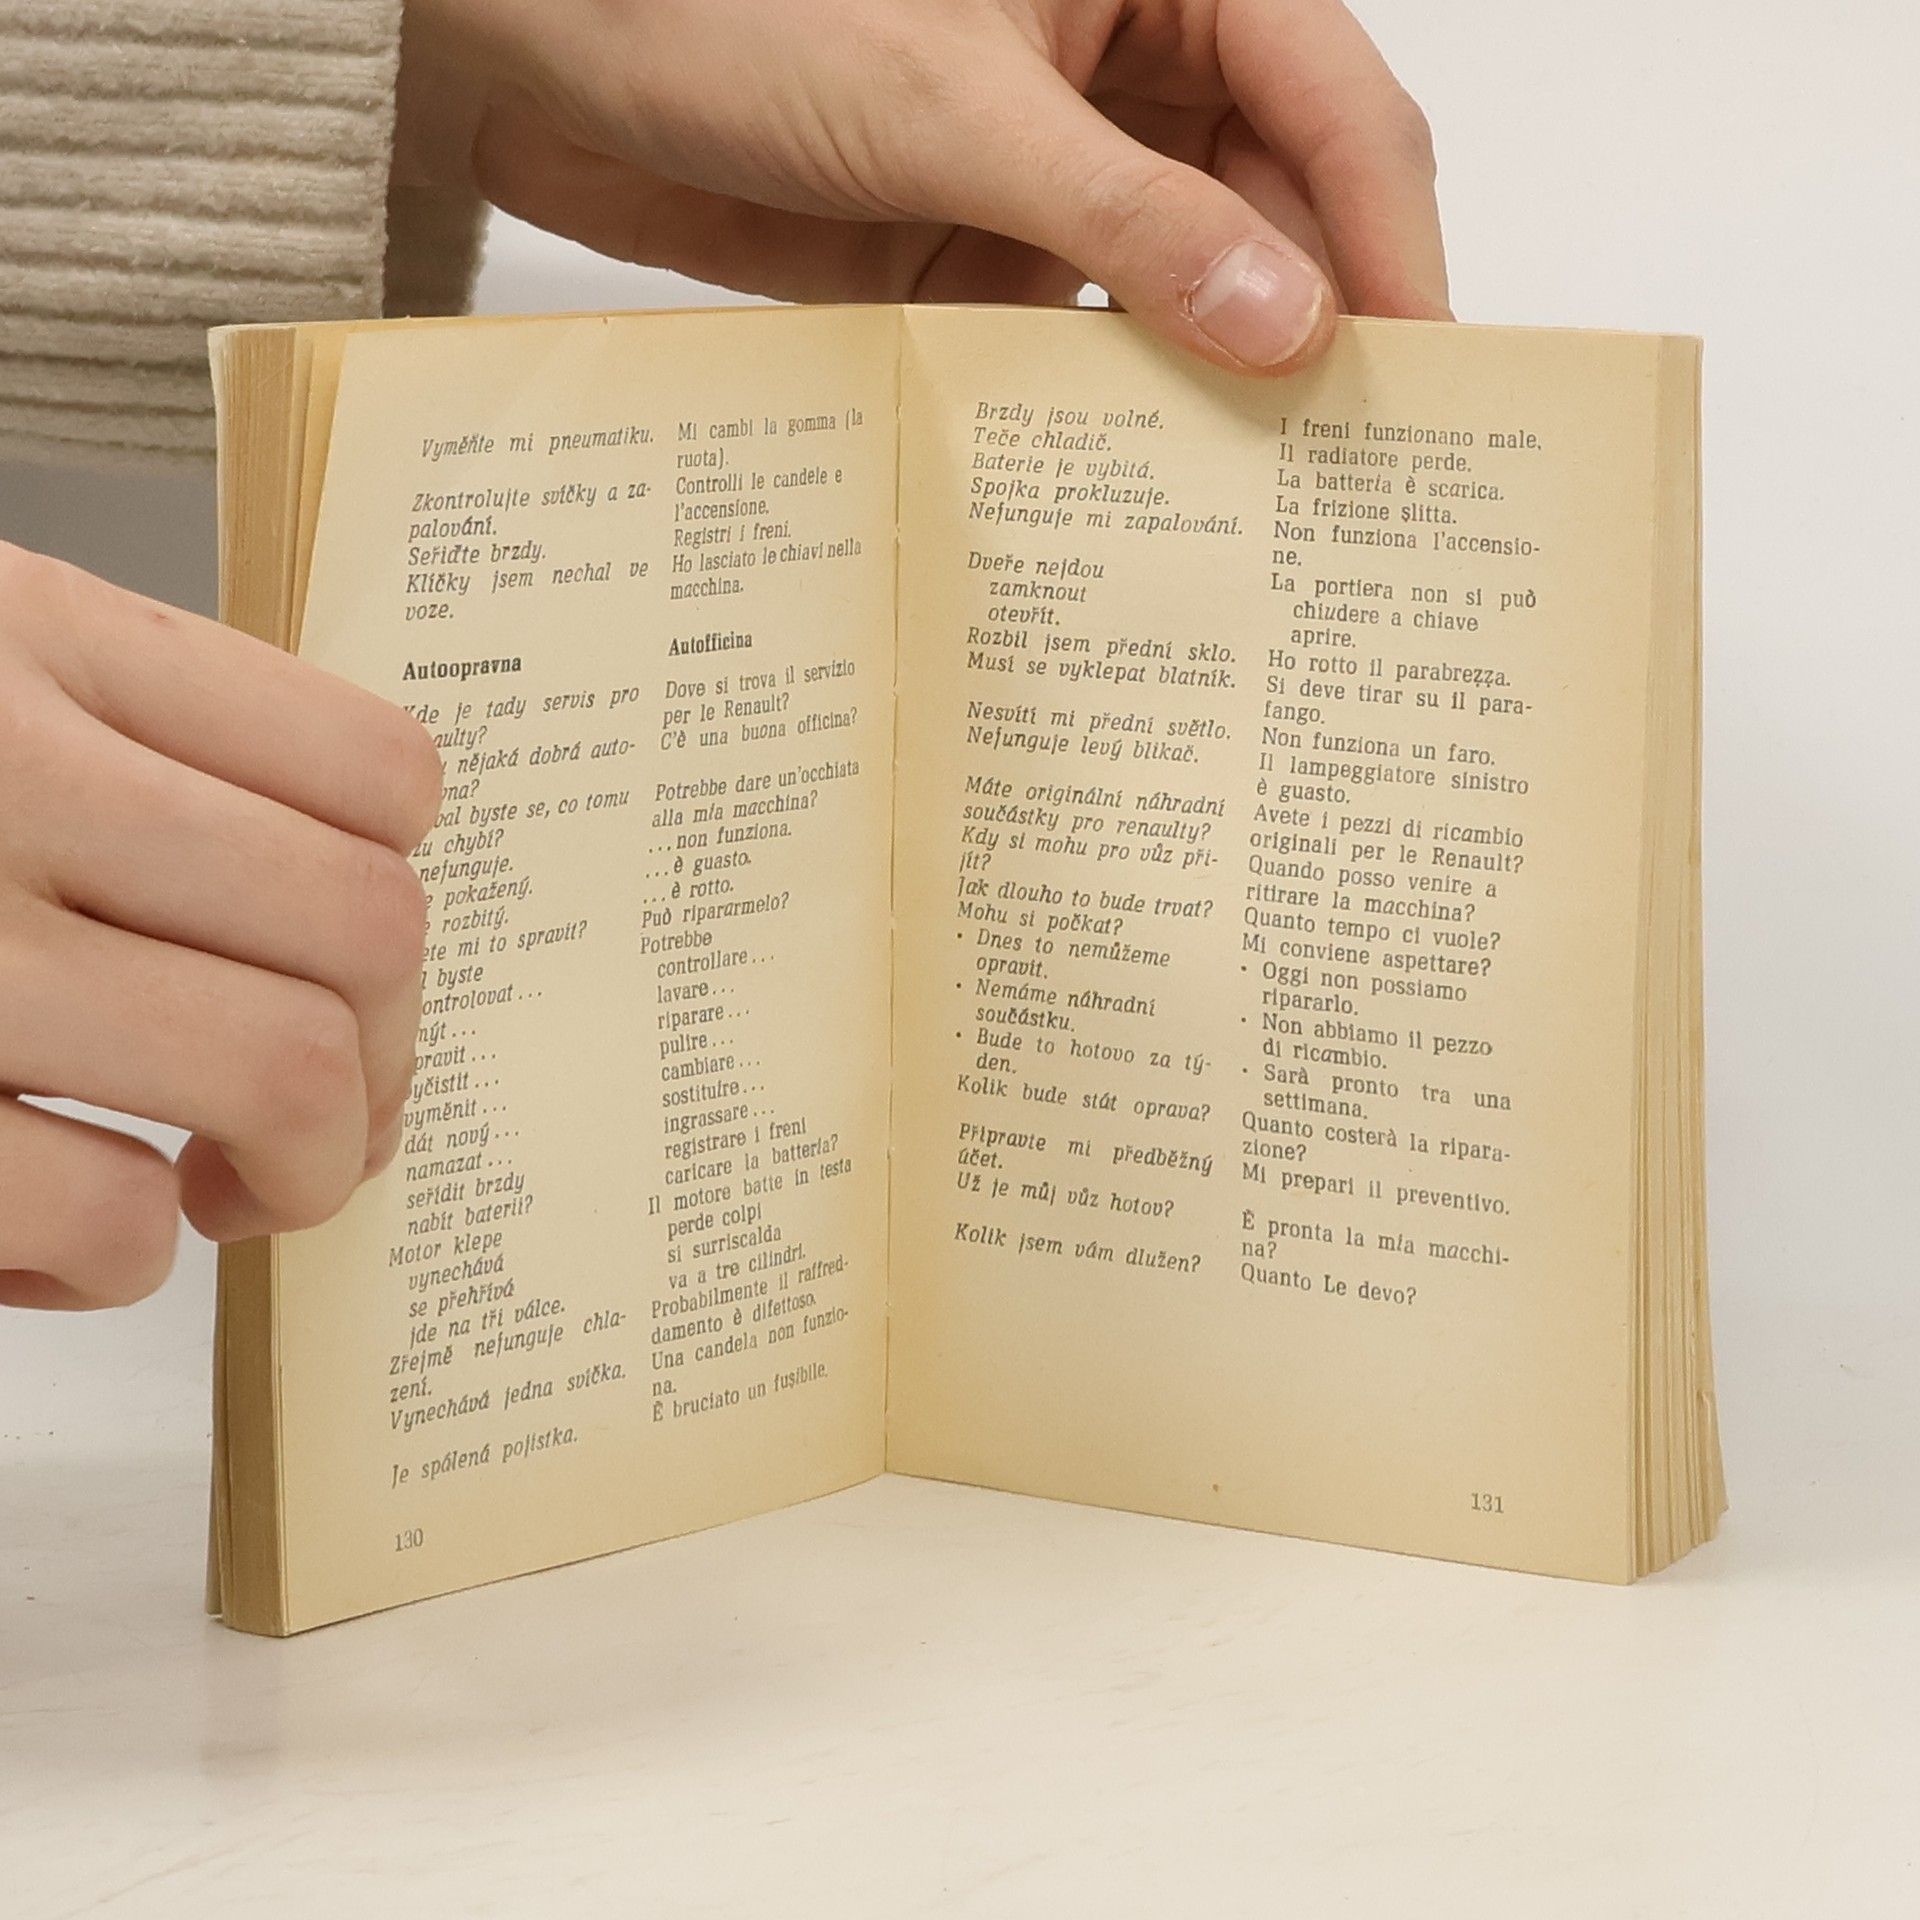 Vyměňte mi pneumatiku.
Zkontrolujte svíčky a za-
palování.
Seřiďte brzdy.
Klíčky jsem nechal ve
voze.
Autoopravna
Kde je tady servis pro
nějaká dobrá auto-
byste se, co tomu
chybí?
nefunguje.
pokažený.
rozbitý.
mi to spravit?
byste
vyměnit...
dát nový...
namazat...
seřídit brzdy
nabít baterii?
Motor klepe
vynechává
se přehřívá
jde na tři válce.
Zřejmě nefunguje chla-
zení.
Vynechává jedna svíčka.
Je spálená pojistka.
130
Mi cambi la gomma (la
ruota).
Controlli le candele e
l'accensione.
Registri i freni.
Ho lasciato le chiavi nella
macchina.
Autofficina
Dove si trova il servizio
per le Renault?
C'è una buona officina?
Potrebbe dare un'occhiata
alla mia macchina?
...non funziona.
...è guasto.
...è rotto.
Può ripararmelo?
Potrebbe
controllare...
lavare...
riparare...
pulire...
cambiare...
sostituire...
ingrassare...
registrare i freni
caricare la batteria?
Il motore batte in testa
perde colpi
si surriscalda
va a tre cilindri.
Probabilmente il raffred-
damento è difettoso.
Una candela non funzio-
na.
È bruciato un fusibile.
Brzdy jsou volné.
Teče chladič.
Baterie je vybitá.
Spojka prokluzuje.
Nefunguje mi zapalování.
Dveře nejdou
zamknout
otevřít.
Rozbil jsem přední sklo.
Musí se vyklepat blatník.
Nesvítí mi přední světlo.
Nefunguje levý blikač.
Máte originální náhradní
součástky pro renaulty?
Kdy si mohu pro vůz při-
jít?
Jak dlouho to bude trvat?
Mohu si počkat?
• Dnes to nemůžeme
opravit.
• Nemáme náhradní
součástku.
• Bude to hotovo za tý-
den.
Kolik bude stát oprava?
Připravte mi předběžný
účet.
Už je můj vůz hotov?
Kolik jsem vám dlužen?
I freni funzionano male.
Il radiatore perde.
La batteria è scarica.
La frizione slitta.
Non funziona l'accensio-
ne.
La portiera non si può
chiudere a chiave
aprire.
Ho rotto il parabrezza.
Si deve tirar su il para-
fango.
Non funziona un faro.
Il lampeggiatore sinistro
è guasto.
Avete i pezzi di ricambio
originali per le Renault?
Quando posso venire a
ritirare la macchina?
Quanto tempo ci vuole?
Mi conviene aspettare?
• Oggi non possiamo
ripararlo.
• Non abbiamo il pezzo
di ricambio.
• Sarà pronto tra una
settimana.
Quanto costerà la ripara-
zione?
Mi prepari il preventivo.
È pronta la mia macchi-
na?
Quanto Le devo?
131